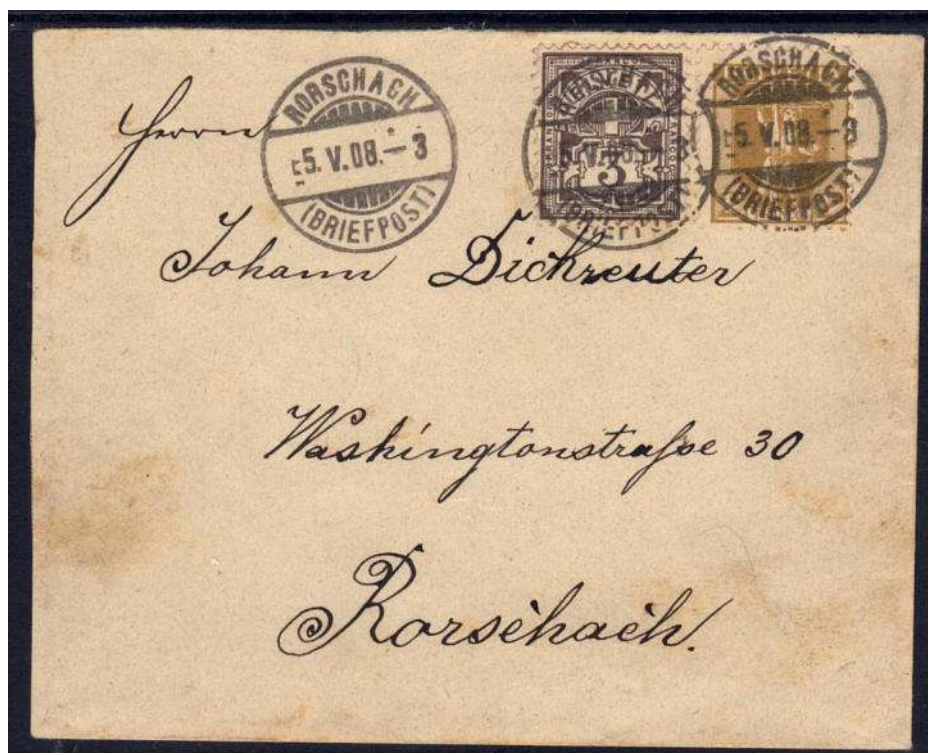 RORSCHACH
5.V.08.-3
(BRIEFPOST)
3
RORSCHACH
5.V.08.-3
(BRIEFPOST)
Herrn
Johann Dickreuter
Washingtonstraße 30
Rorschach.